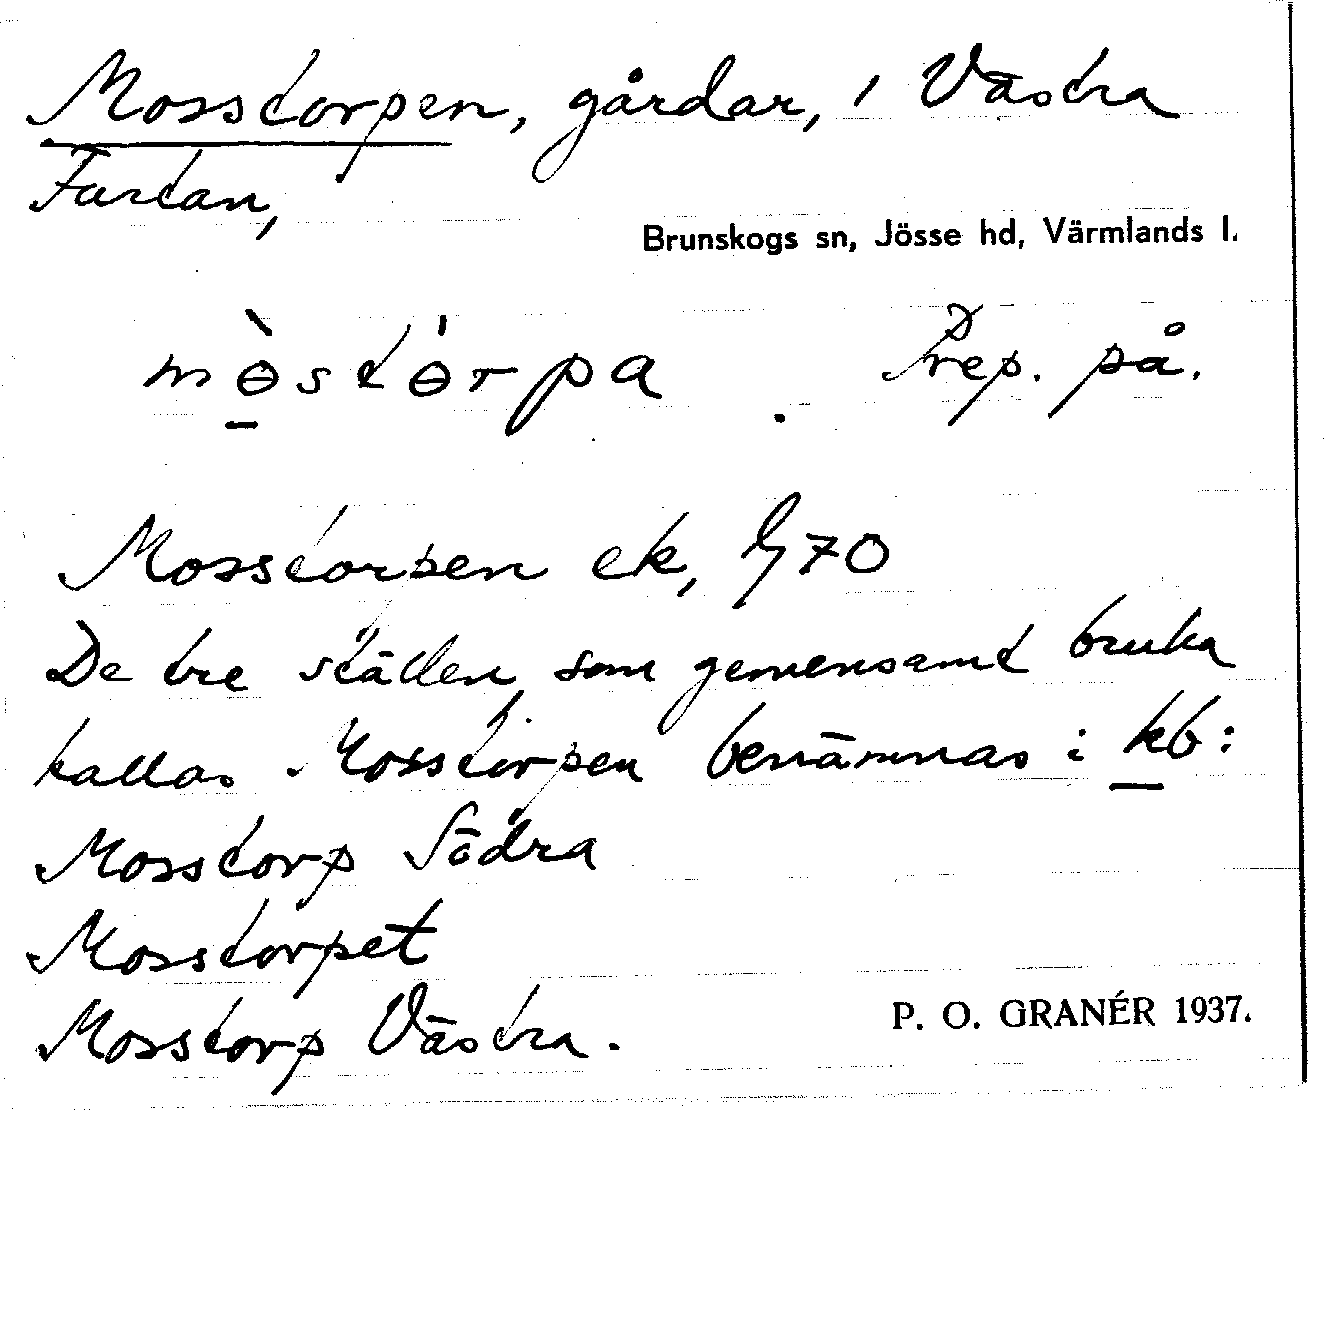 Mosstorpen, gårdar, i Västra
Fastan,
Brunskogs sn, Jösse hd, Värmlands l.
mɵ̱̀stɵ́rpa . Prep. på.
Mosstorpen ek, G70
De tre ställen, som gemensamt bruka
kallas Mosstorpen benämnas i kb:
Mosstorp Södra
Mosstorpet
Mosstorp Västra.
P. O. GRANÉR 1937.